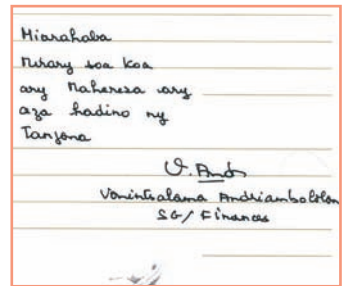 Miarahaba
Mirary soa koa
ary Mahereza ary
aza hadino ny
Tanjona
V. And
Vonintsalama Andriambololon
SG/ Finances